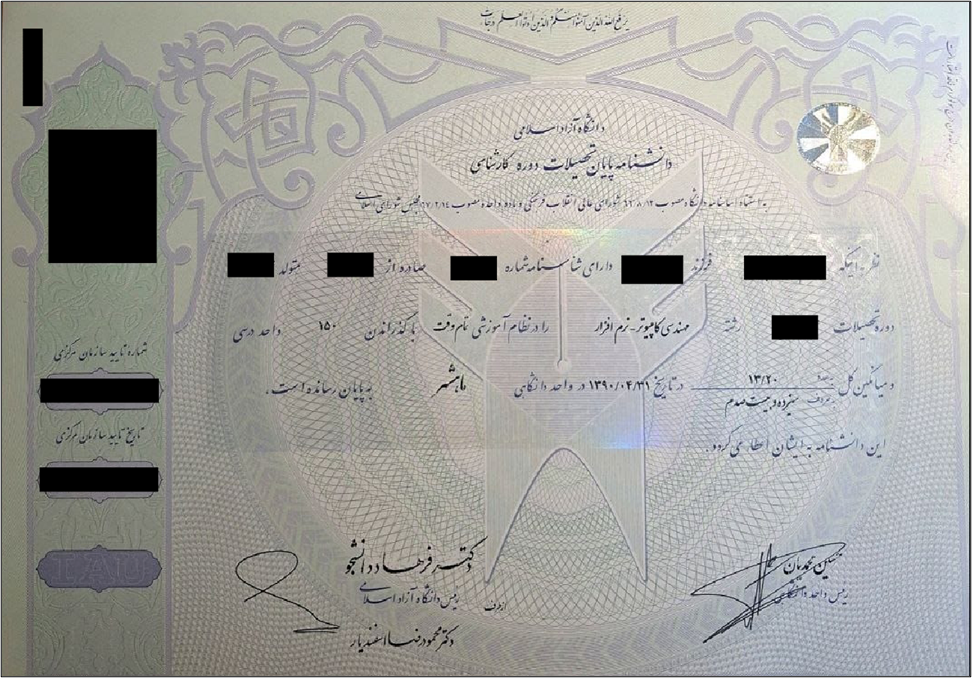 یرفع الله الذین آمنوا منکم و الذین اوتوا العلم درجات
دانشگاه آزاد اسلامی
دانشنامه پایان تحصیلات دوره کارشناسی
به استناد اساسنامه دانشگاه مصوب شورای عالی انقلاب فرهنگی و ماده واحده مصوب مجلس شورای اسلامی
نظر به اینکه فرزند دارای شناسنامه شماره صادره از متولد
دوره تحصیلات رشته مهندسی کامپیوتر-نرم افزار را در نظام آموزشی تمام وقت با گذراندن ۱۵۰ واحد درسی
و میانگین کل بعدد ۱۳/۲۰ بحروف سیزده و بیست صدم در تاریخ ۱۳۹۰/۰۴/۳۱ در واحد دانشگاهی ماهشهر به پایان رسانده است.
این دانشنامه به ایشان اعطا می گردد.
شماره تایید سازمان مرکزی
تاریخ تایید سازمان مرکزی
حسین محمدیان
رئیس واحد دانشگاهی
دکتر فرهاد دانشجو
رئیس دانشگاه آزاد اسلامی
از طرف
دکتر محمودرضا اسفندیار